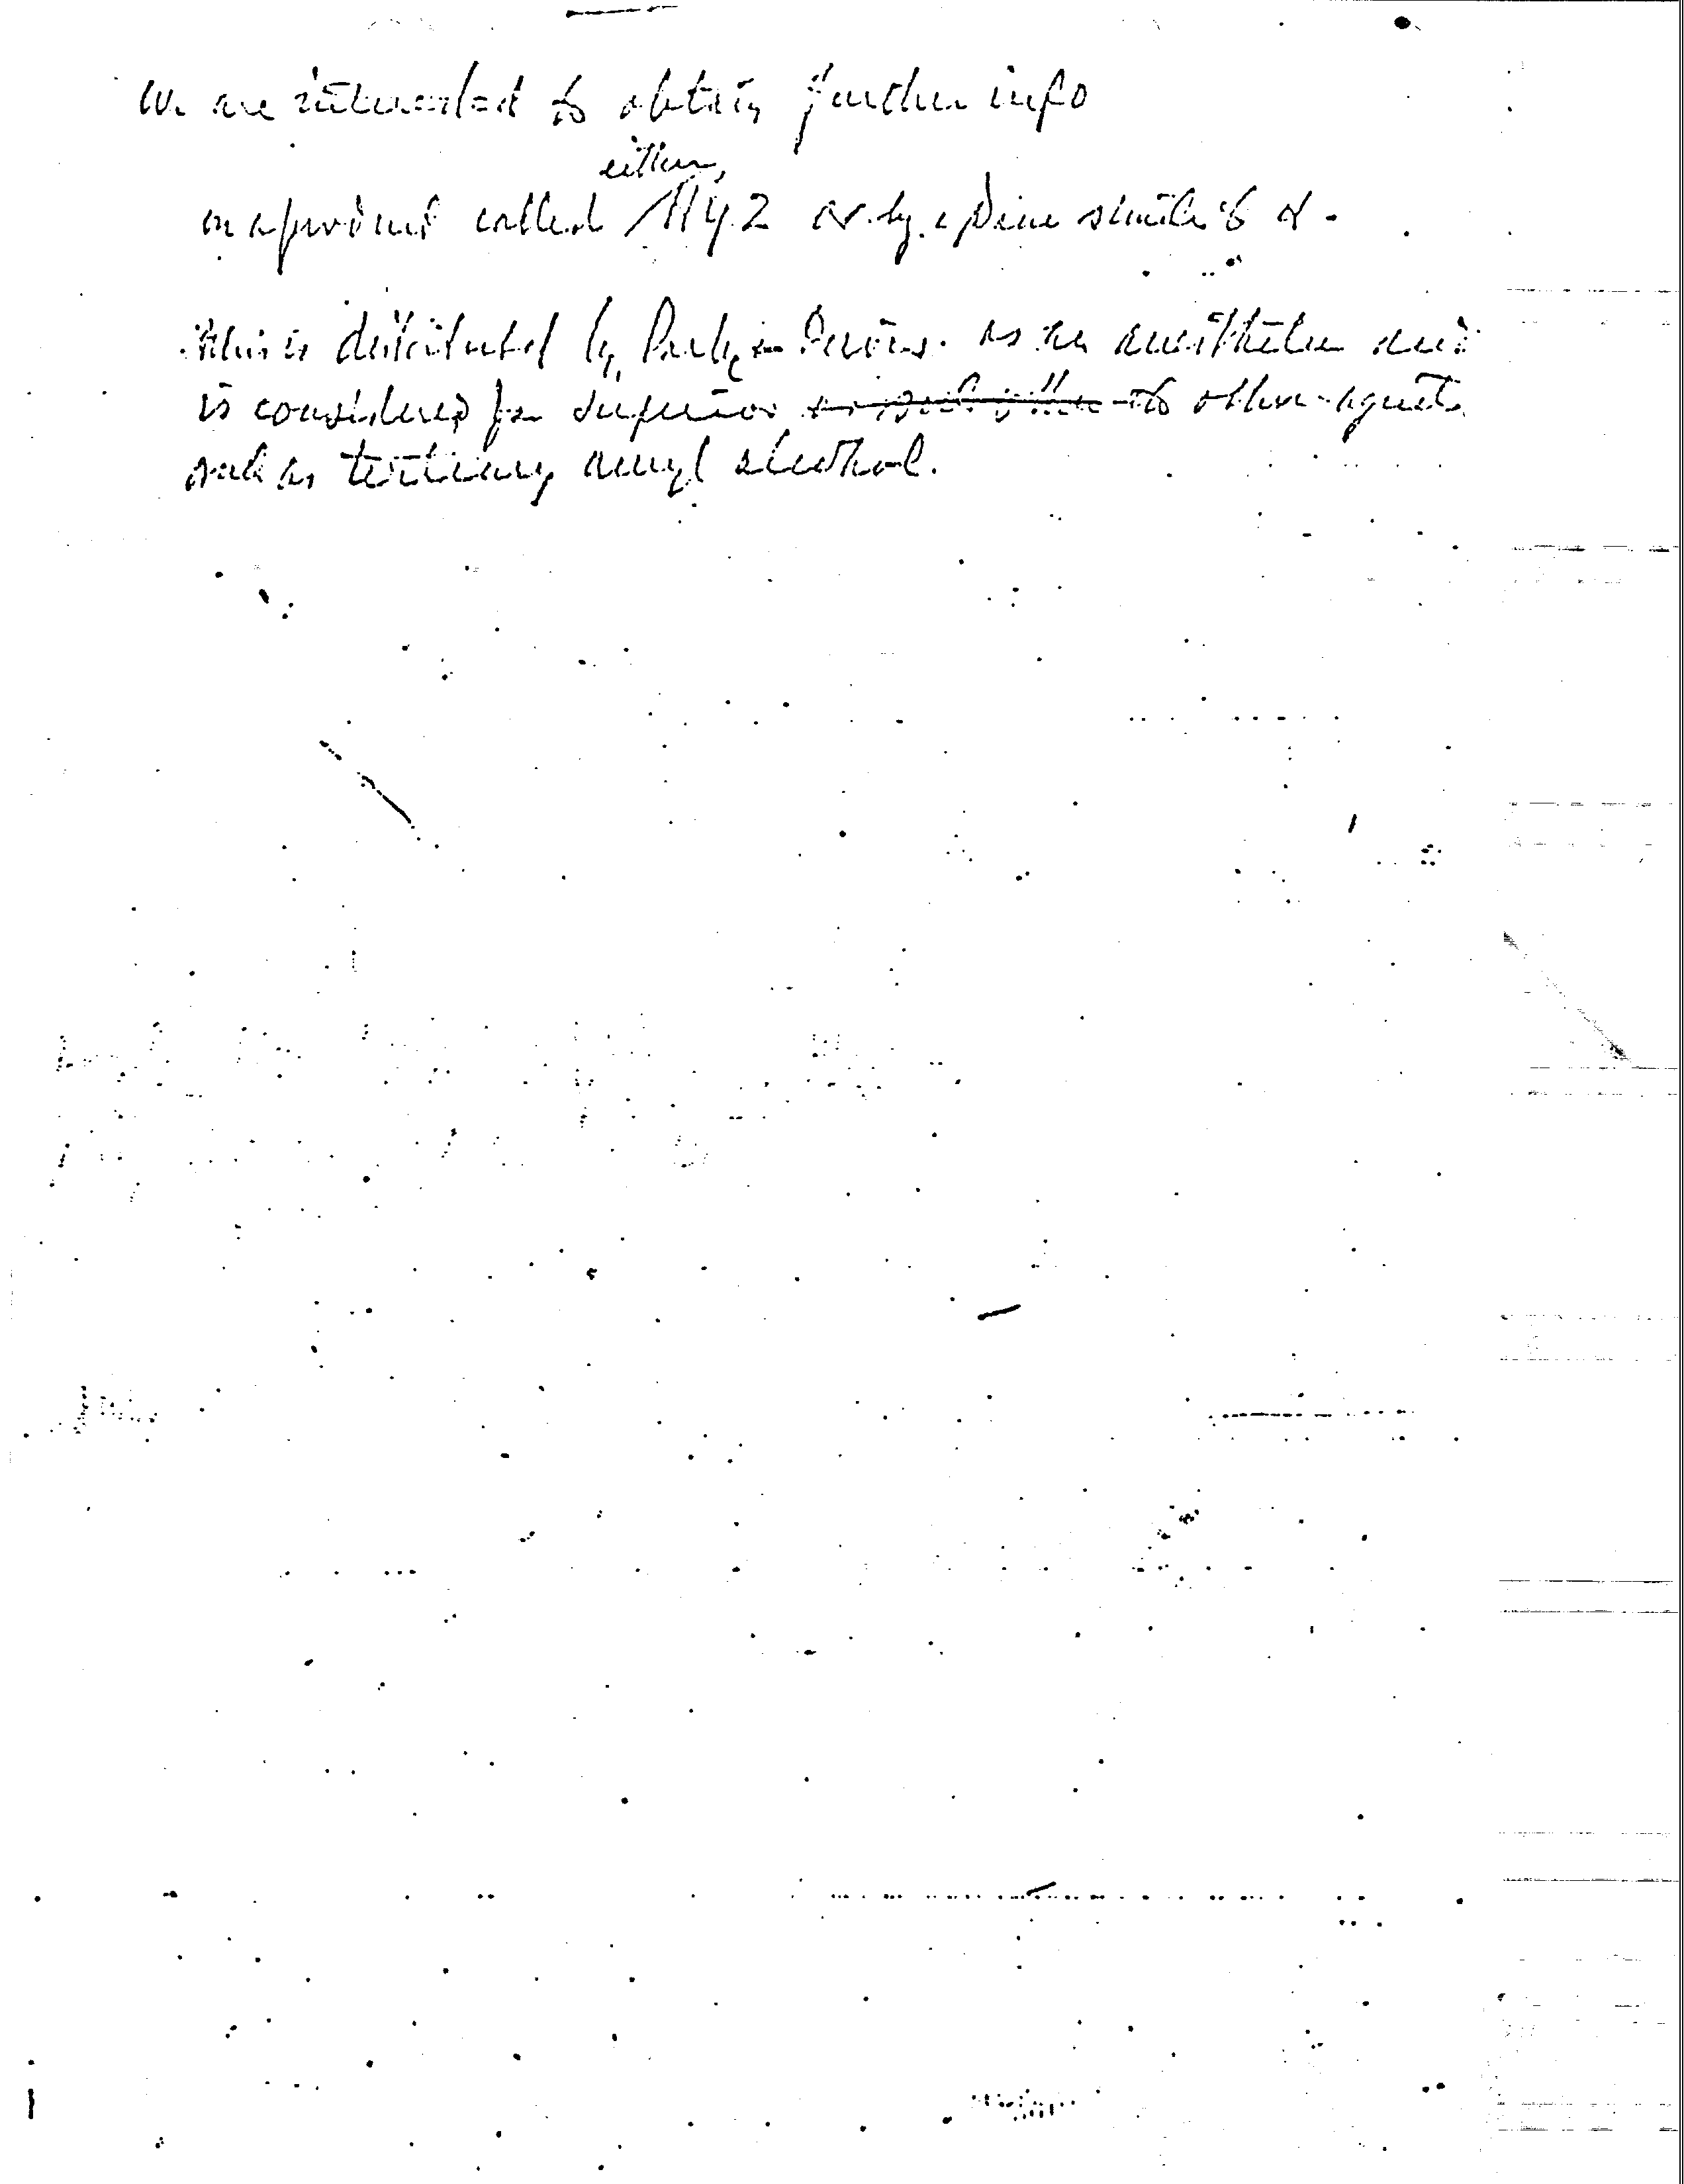 We are interested to obtain further info
either
on a product called MY2 or by a name similar to it.
This is distributed by Parke-Davis as an anesthetic and
is considered far superior to other agents
such as tertiary amyl alcohol.